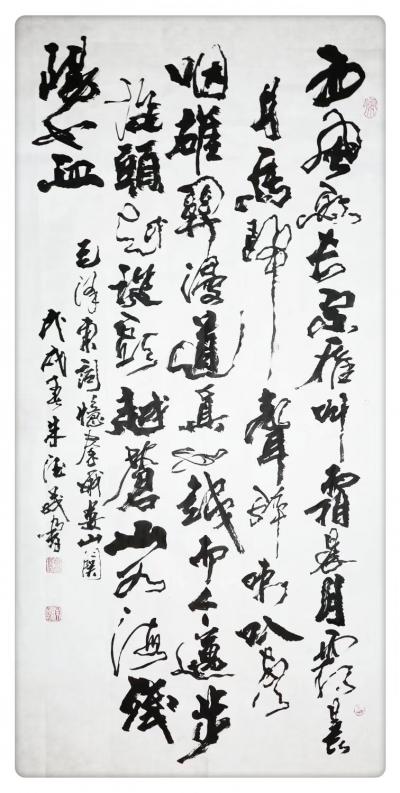 西風烈長空雁叫霜晨月霜晨
月馬蹄聲碎喇叭聲
咽雄關漫道真如鐵而今邁步
從頭越從頭越蒼山如海殘
陽如血
毛澤東詞憶秦娥婁山關
戊戌春朱書